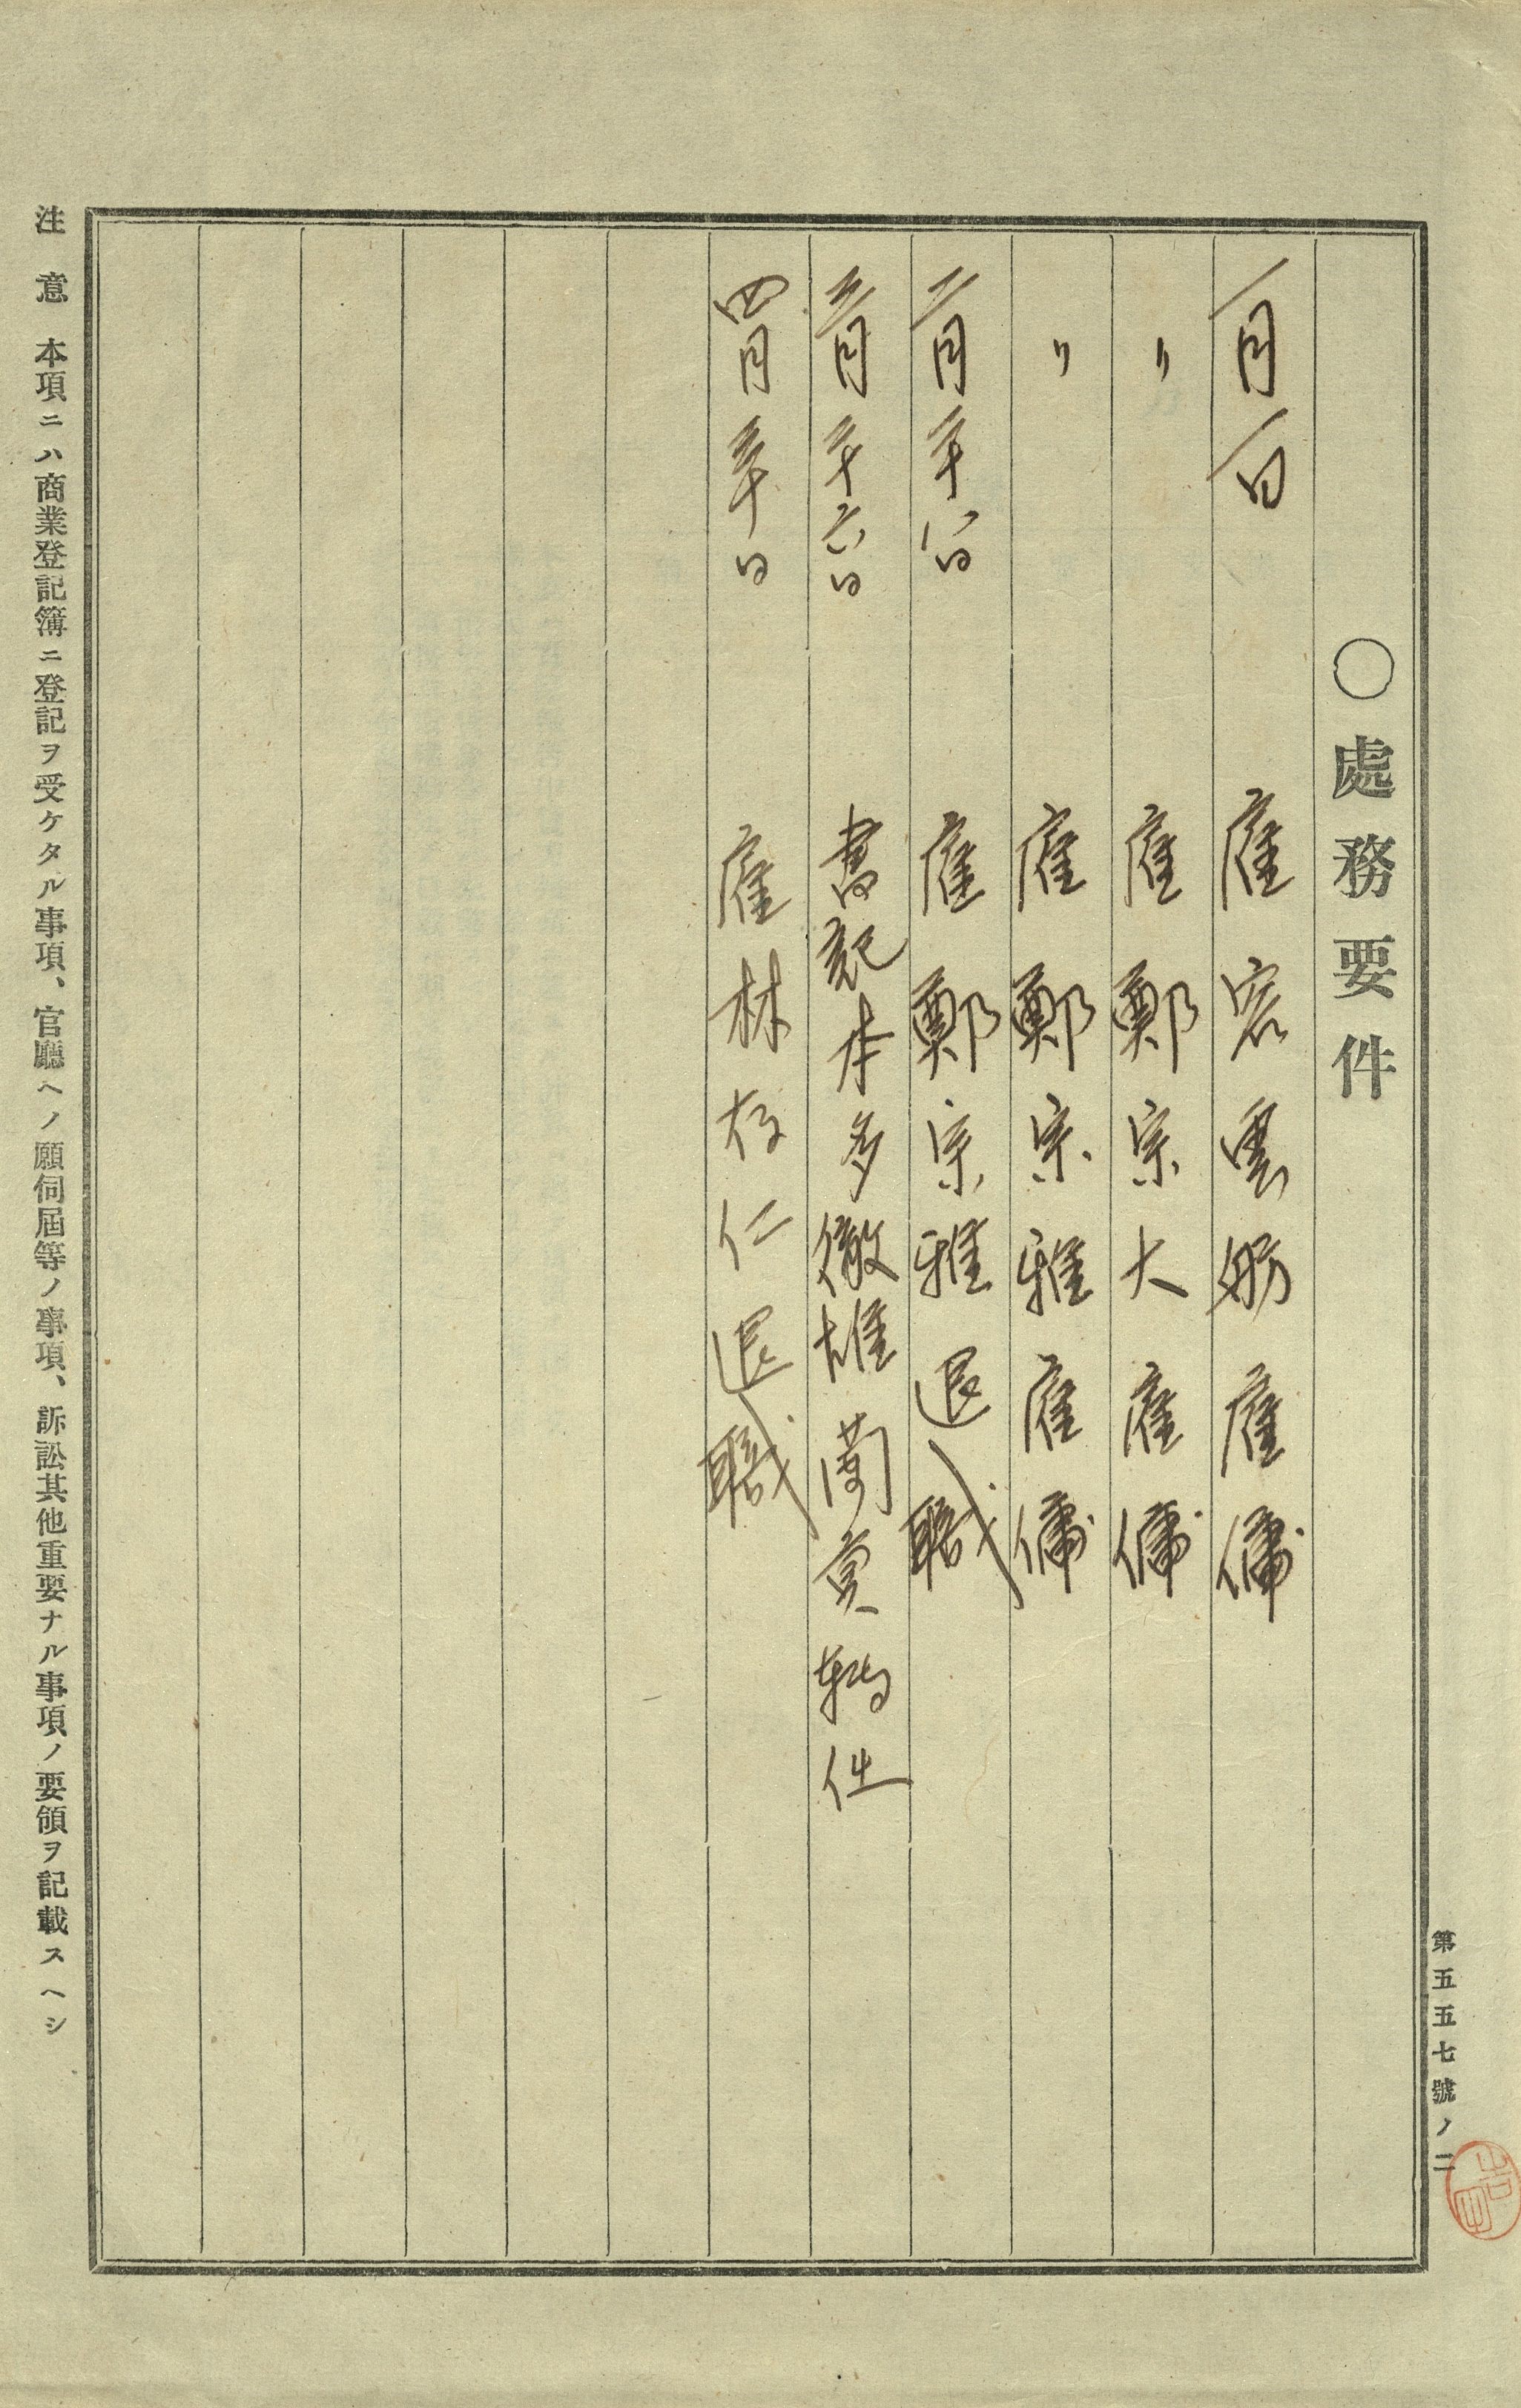 第五五七號ノ二
〇處務要件
一月一日 雇 宏雲舫 雇傭
〃 雇 鄭宗大 雇傭
〃 雇 鄭宗雅 雇傭
二月二十八日 雇 鄭宗雅 退職
三月二十六日 書記 本多徹雄 蘭貢轉任
四月三十日 雇 林存仁 退職
注意 本項ニハ商業登記簿ニ登記ヲ受ケタル事項、官廳ヘノ願伺屆等ノ事項、訴訟其他重要ナル事項ノ要領ヲ記載スヘシ